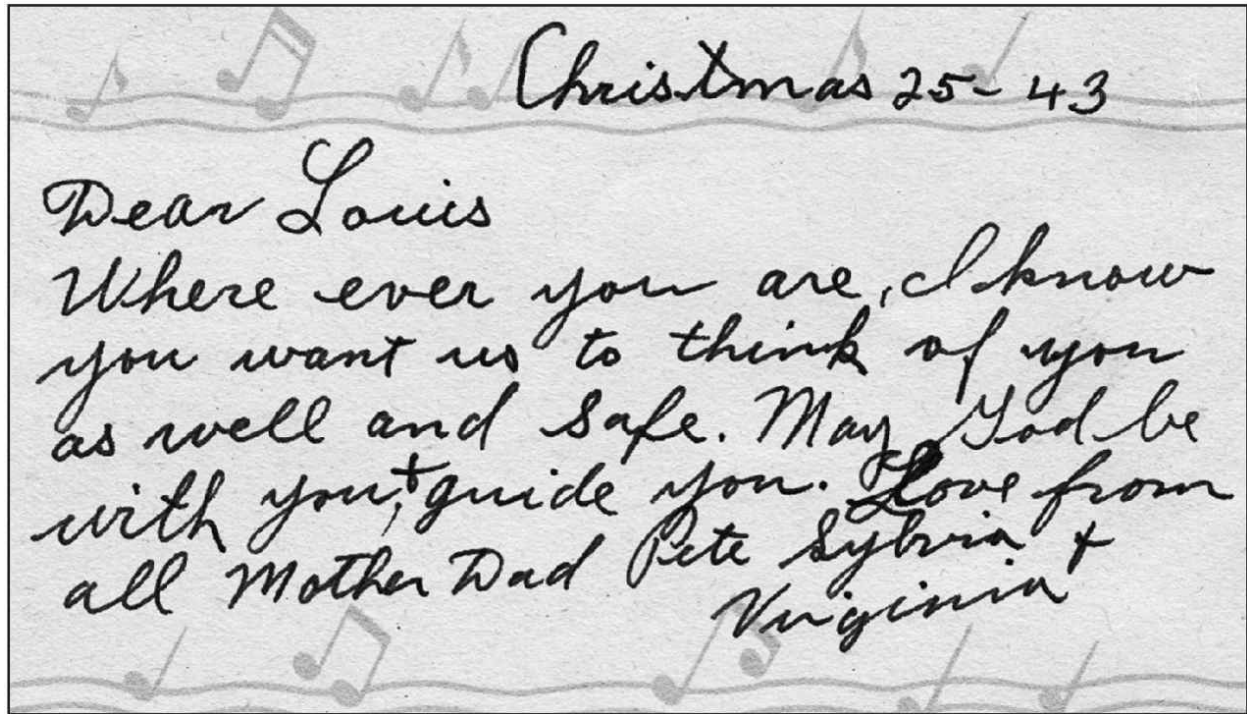 Christmas 25- 43
Dear Louis
Where ever you are, I know
you want us to think of you
as well and safe. May God be
with you, + guide you. Love from
all Mother Dad Pete Sylvia +
Virginia